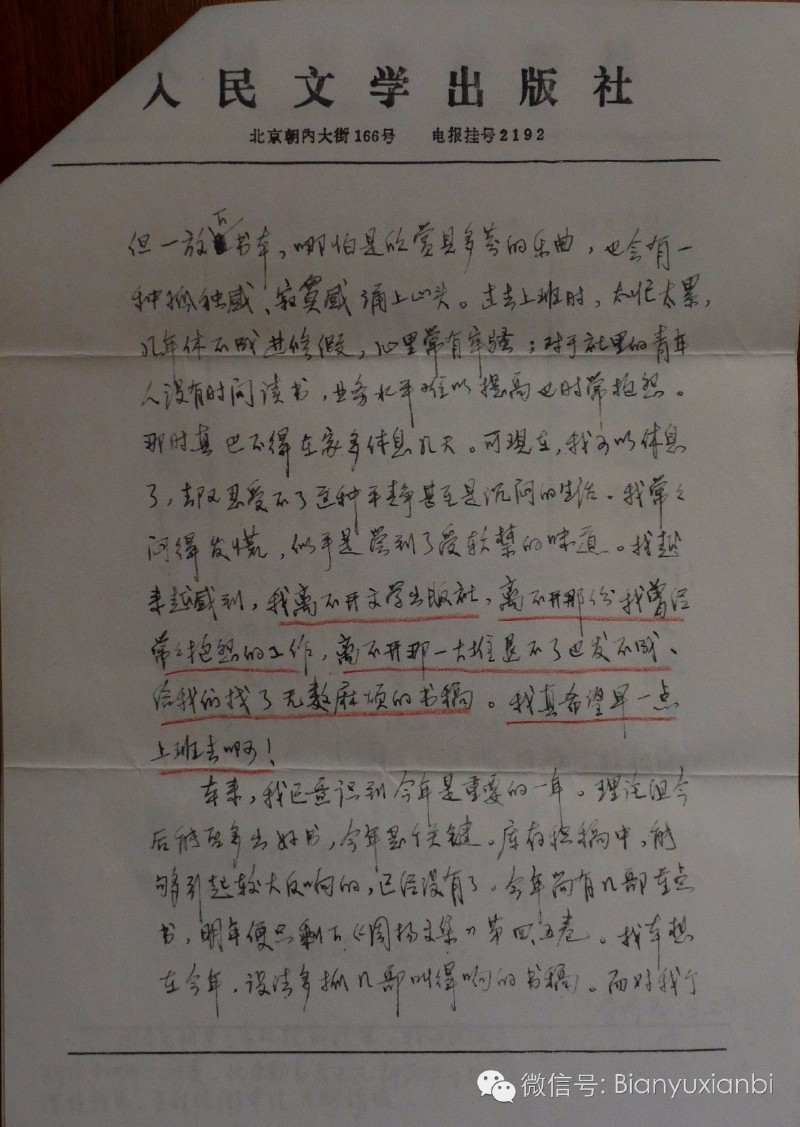 人民文学出版社
北京朝内大街166号 电报挂号2192
但一放下书本，哪怕是欣赏贝多芬的乐曲，也会有一
种孤独感、寂寞感涌上心头。过去上班时，太忙太累，
几年休不成进修假，心里常有牢骚；对于社里的青年
人没有时间读书，业务水平难以提高也时常抱怨。
那时真巴不得在家多休息几天。可现在，我可以休息
了，却又忍受不了这种平静甚至是沉闷的生活。我常常
闷得发慌，似乎是尝到了受软禁的味道。我越
来越感到，我离不开文学出版社，离不开那份我曾经
常常抱怨的工作，离不开那一大堆退不了也发不成、
给我们找了无数麻烦的书稿。我真希望早一点
上班去啊！
本来，我已意识到今年是重要的一年。理论组今
后能否多出好书，今年是个关键。库存积稿中，能
够引起较大反响的，已经没有了。今年尚有几部重点
书，明年便只剩下《周扬文集》第四、五卷。我本想
在今年，设法多抓几部叫得响的书稿。而对我个
微信号: Bianyuxianbi